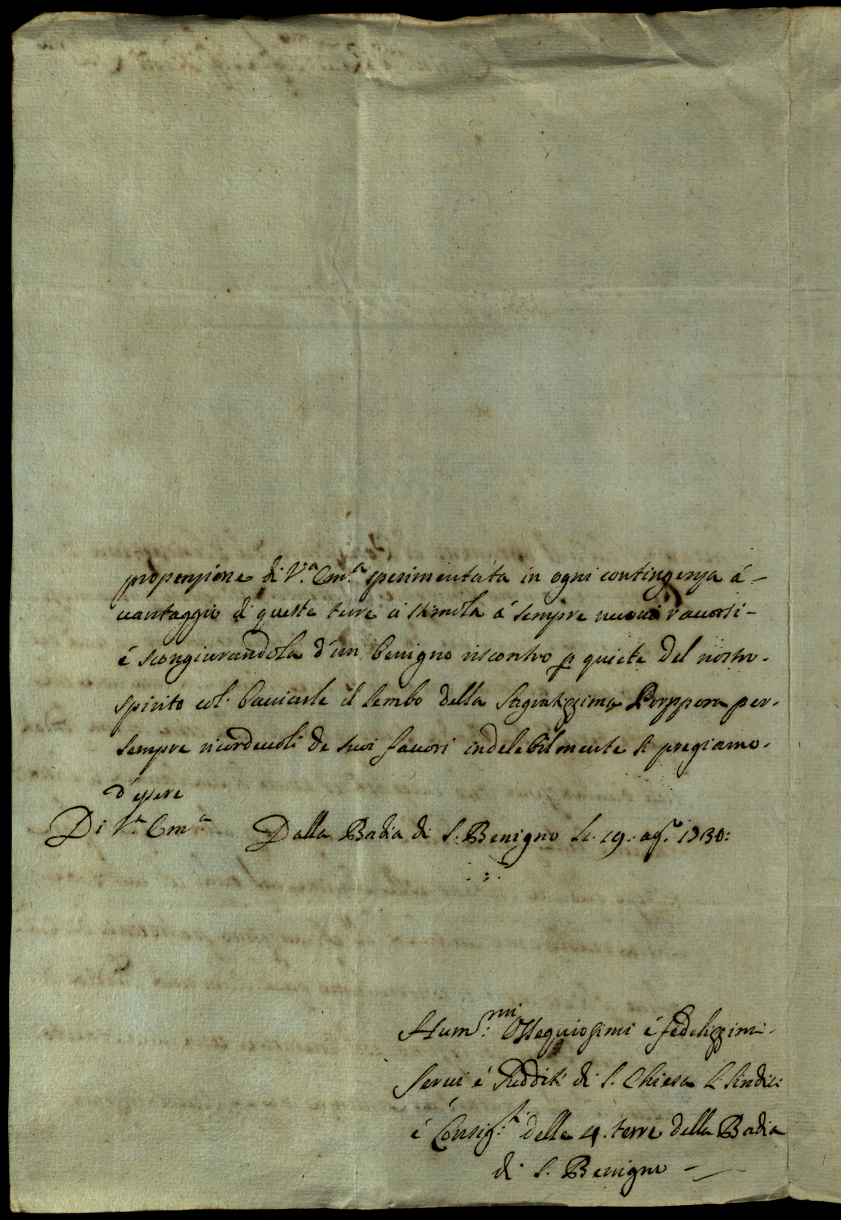 propenzione di V.ª Em.ª sperimentata in ogni contingenza á-
vantaggio di queste terre ci stimola á sempre nuovi
é scongiurandola d'un benigno riscontro p quiete del nostro-
spirito col' bacciarle il lembo della Sagratissima Porppora per-
sempre ricordevoli de suoi favori indelebilmente si pregiamo-
d'essere
Di V.ª Em.ª Dalla Badia di S. Benigno li 19. ag.º 1730:
Hum.mi Ossequiosissimi é fedelissimi-
Servi é Suddit di S. Chiesa li Sindici
é Consig.ri delle 4. terre della Badia
di S. Benigno